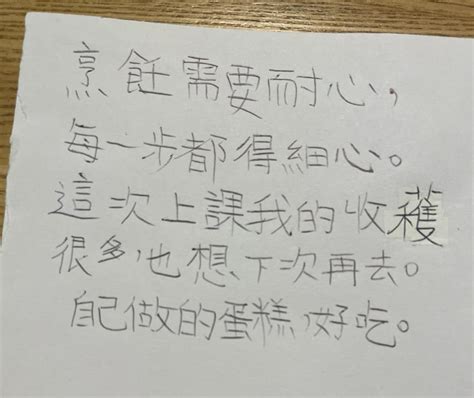 烹飪需要耐心，
每一步都得細心。
這次上課我的收穫
很多，也想下次再去。
自己做的蛋糕，好吃。